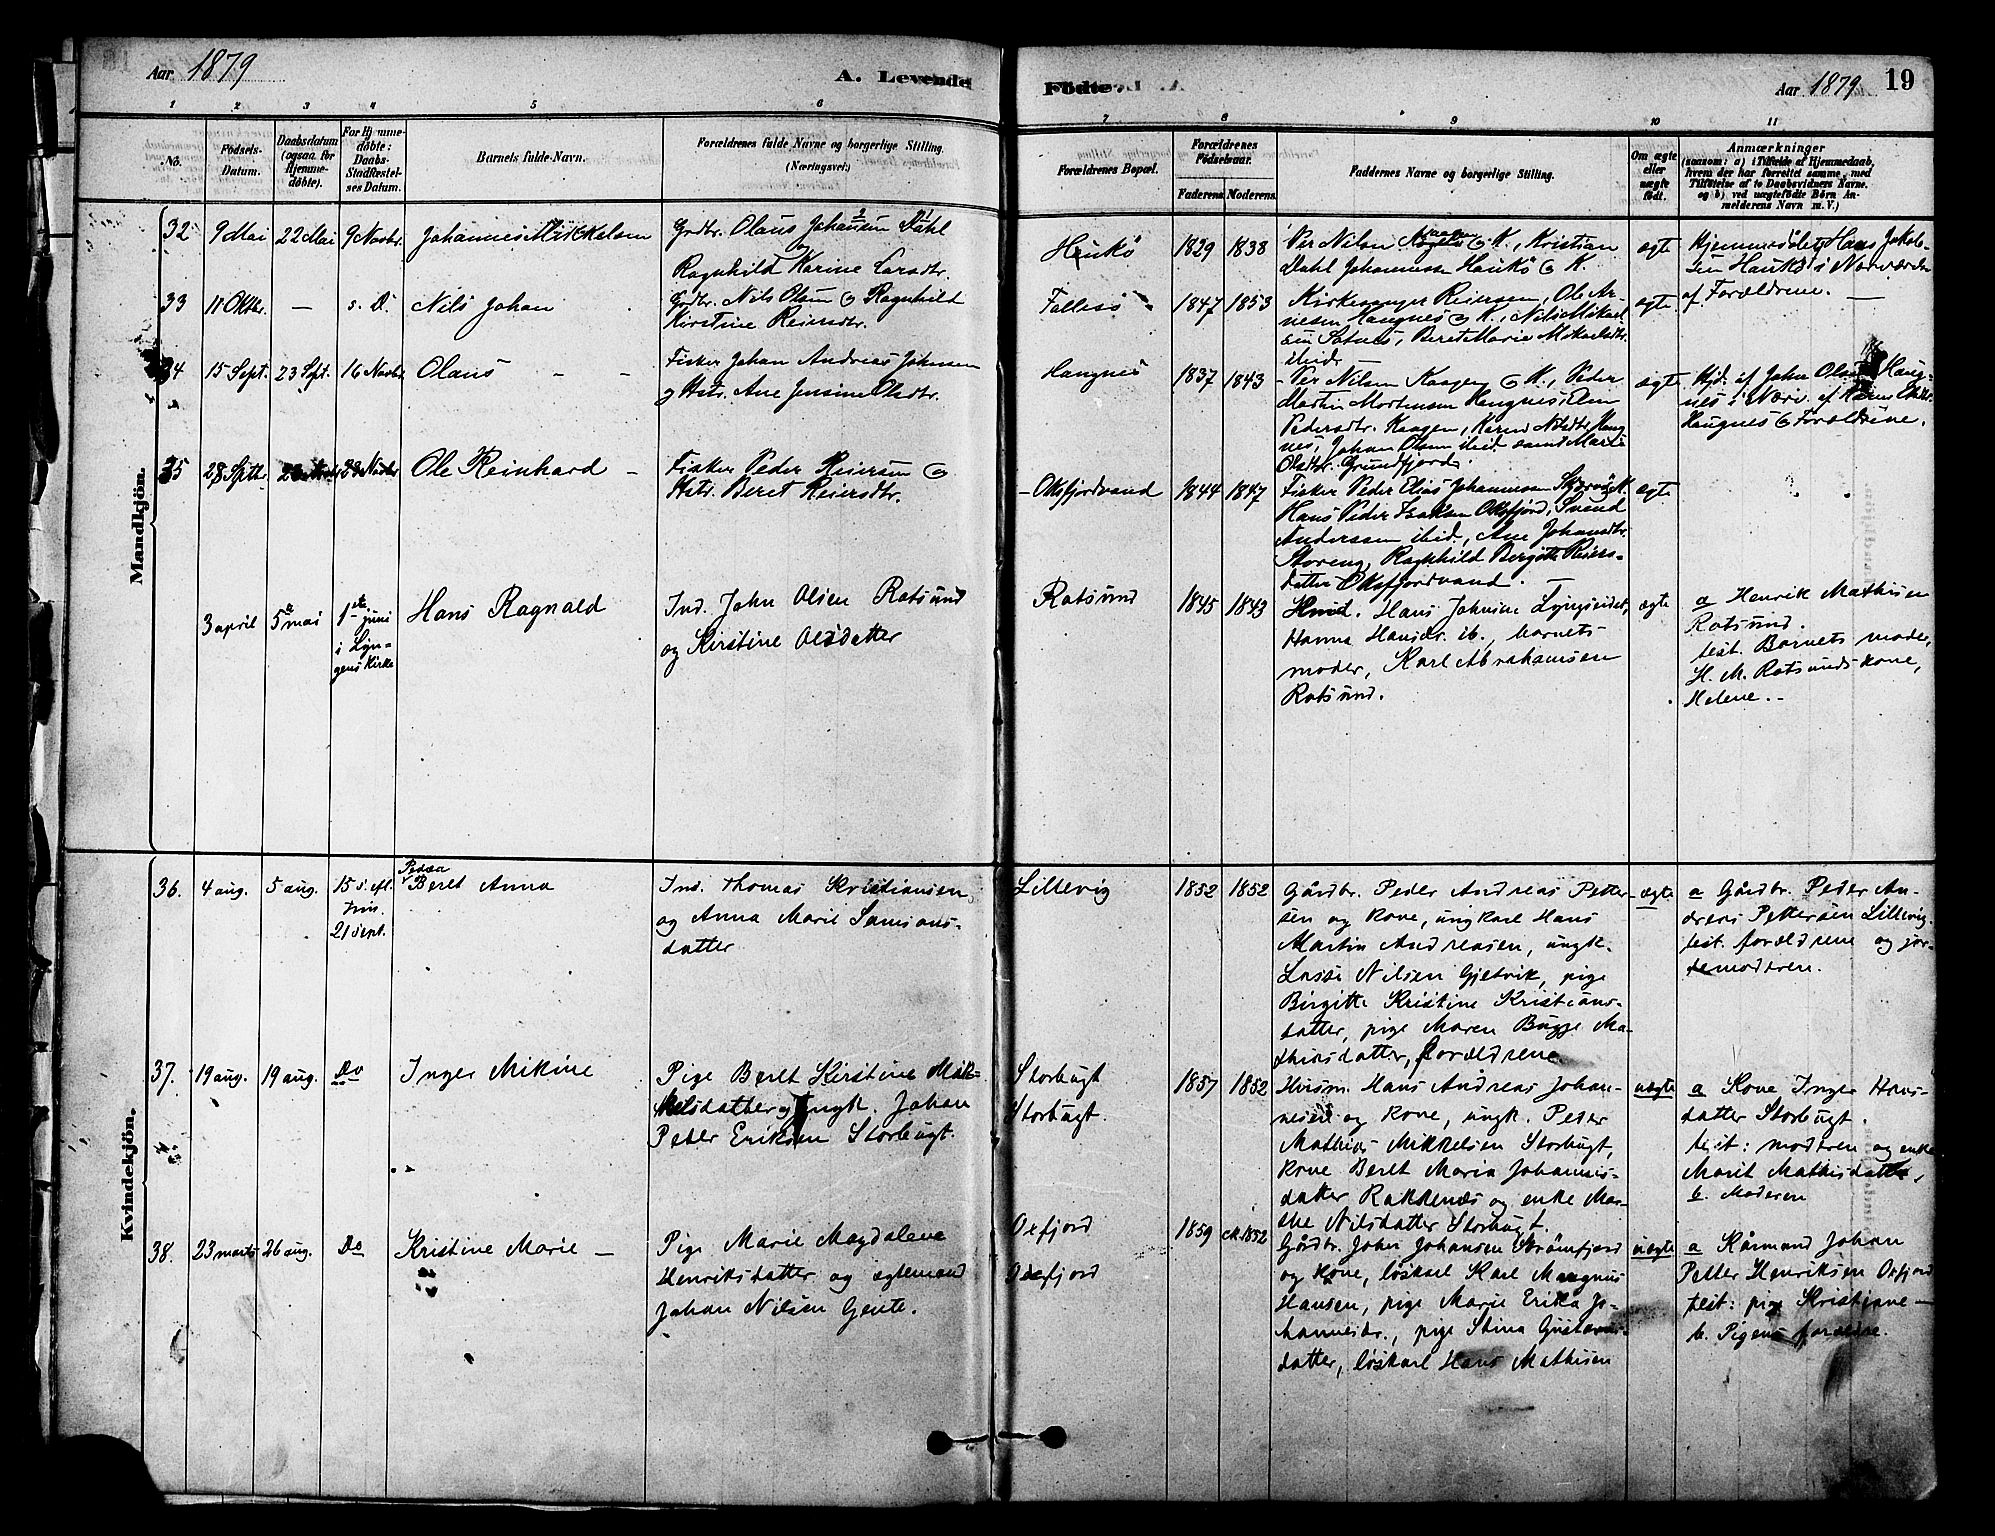 Aar 1879
A. Levende
Fødte.
Aar 1879
19
1 2 3 4 5 6 7 8 9 10 11
No.
Fødsels-
Datum.
Daabsdatum
(ogsaa for
Hjemme-
døbte).
For Hjemme-
døbte:
Daabs-
Stadfæstel-
ses Datum.
Barnets fulde Navn.
Forældrenes fulde Navne og borgerlige Stilling.
(Næringsvei.)
Forældrenes Bopæl.
Forældrenes
Fødselsaar.
Faderens
Moderens
Faddernes Navne og borgerlige Stilling.
Om ægte
eller
uægte
født.
Anmærkninger
(saasom: a) i Tilfælde af Hjemmedaab,
hvem der har forrettet samme, med
Tilføielse af to Daabsvidners Navne,
og b) ved uægtefødte Børn An-
melderens Navn m. V.)
Mandkjøn.
32 9 Mai 22 Mai 9 Novbr. Johannes Mikkelsen
Grdbr. Olaus Johansen Dahl
og
Ragnhild Karine Larsdtr.
Haukø 1829 1838
Per Nilsen Kaagen & K., Kristian
Dahl Johannessen Haukø & K.
ægte
Hjemmedøbt Hans Jakob-
sen Haukø i Nærværelse
af Forældrene.
33 11 Oktbr. — s. D. Nils Johan
Grdbr. Nils Olsen & Ragnhild
Kirstine Reiersdtr.
1847 1853
Kirkesanger Reiersen, Ole Ar-
nesen Haugnes & K., Nils Mikael
sen, Beret Marie Mikaelsdtr.
ibid.
ægte
34 15 Sept. 23 Spt. 16 Novbr. Olaus
Fisker Johan Andreas Johnsen
og Hstr. Ane Jensine Olsdtr.
Haugnes 1837 1843
Per Nilsen Kaagen & K., Peder
Martin Mortensen Haugnes, Elen
Pedersdtr. Kaagen, Karen Nilsdtr. Haug
nes, Johan Olsen ibid. samt Marit
Olsdtr. Grundfjord.
ægte
Hjd. af John Olsen Haug-
nes i Nærv. af Karen Olsdtr.
Haugnes & Forældrene.
35 28 Sptbr. 23 Novbr. Ole Reinhard
Fisker Peder Reiersen &
Hstr. Beret Reiersdtr.
Oksfjordvand 1844 1847
Fisker Peder Elias Johannessen Skjærvø & K.
Hans Peder Isaksen Oksfjord, Svend
Anderssen ibid., Ane Johansdtr.
Storeng, Ragnhild Bergitte Reiers-
datter Oksfjordvand.
ægte
3 april 5te mai 1ste juni
i Lyn-
gens Kirke
Hans Ragnald
Ind. John Olsen Rotsund
og Kirstine Olsdatter
Rotsund 1845 1843
Hmd. Hans Johnsen Lyngseidet,
Hanna Hansdr. ib., barnets
moder, Karl Abrahamsen
Rotsund.
ægte
a Henrik Mathisen
Rotsund.
test. Barnets moder,
H. M. Rotsunds kone,
Helene. -
Kvindekjøn.
36. 4 aug. 5 aug. 15 s. eft.
trin.
21 sept.
Pedrea
Beret Anna
Ind. Thomas Kristiansen
og Anna Marie Samsons-
datter
Lillevig 1852 1852
Gårdbr. Peder Andreas Petter-
sen og kone, ungkarl Hans
Martin Andreasen, ungk.
Lasse Nilsen Gjetvik, pige
Birgitte Kristine Kristians-
datter, pige Maren Bugge Ma-
thisdatter, forældrene
ægte
a Gårdbr. Peder An-
dreas Pettersen Lillevig.
test. forældrene og jor-
demoderen.
37. 19 aug. 19 aug. Do Inger Mikine
Pige Beret Kirstine Mik-
kelsdatter og ungk. Johan
Peter Eriksen Storbugt.
Storbugt
Storbugt.
1857 1852
Husm. Hans Andreas Johan-
nesen og kone, ungk. Peder
Mathias Mikkelsen Storbugt,
kone Beret Maria Johannes-
datter Rakkenæs og enke Mar-
the Nilsdatter Storbugt.
uægte
a Kone Inger Hans-
datter Storbugt.
test: moderen og enke
Marit Mathisdatter,
b. Moderen
38. 23 marts 26 aug. Do Kristine Marie
Pige Marie Magdalene
Henriksdatter og ægtemand
Johan Nilsen Gjeite.
Oxfjord
Oxfjord
1859 ca 1852
Gårdbr. Johan Johansen Strømfjord
og kone, løskarl Karl Magnus
Hansen, pige Marie Erika Jo-
hannesdr., pige Stina Gustavs-
datter, løskarl Hans Mathisen
uægte
a Kårmand Johan
Petter Henriksen Oxfjord
test: pige Kristiane
b. Pigens forældre.